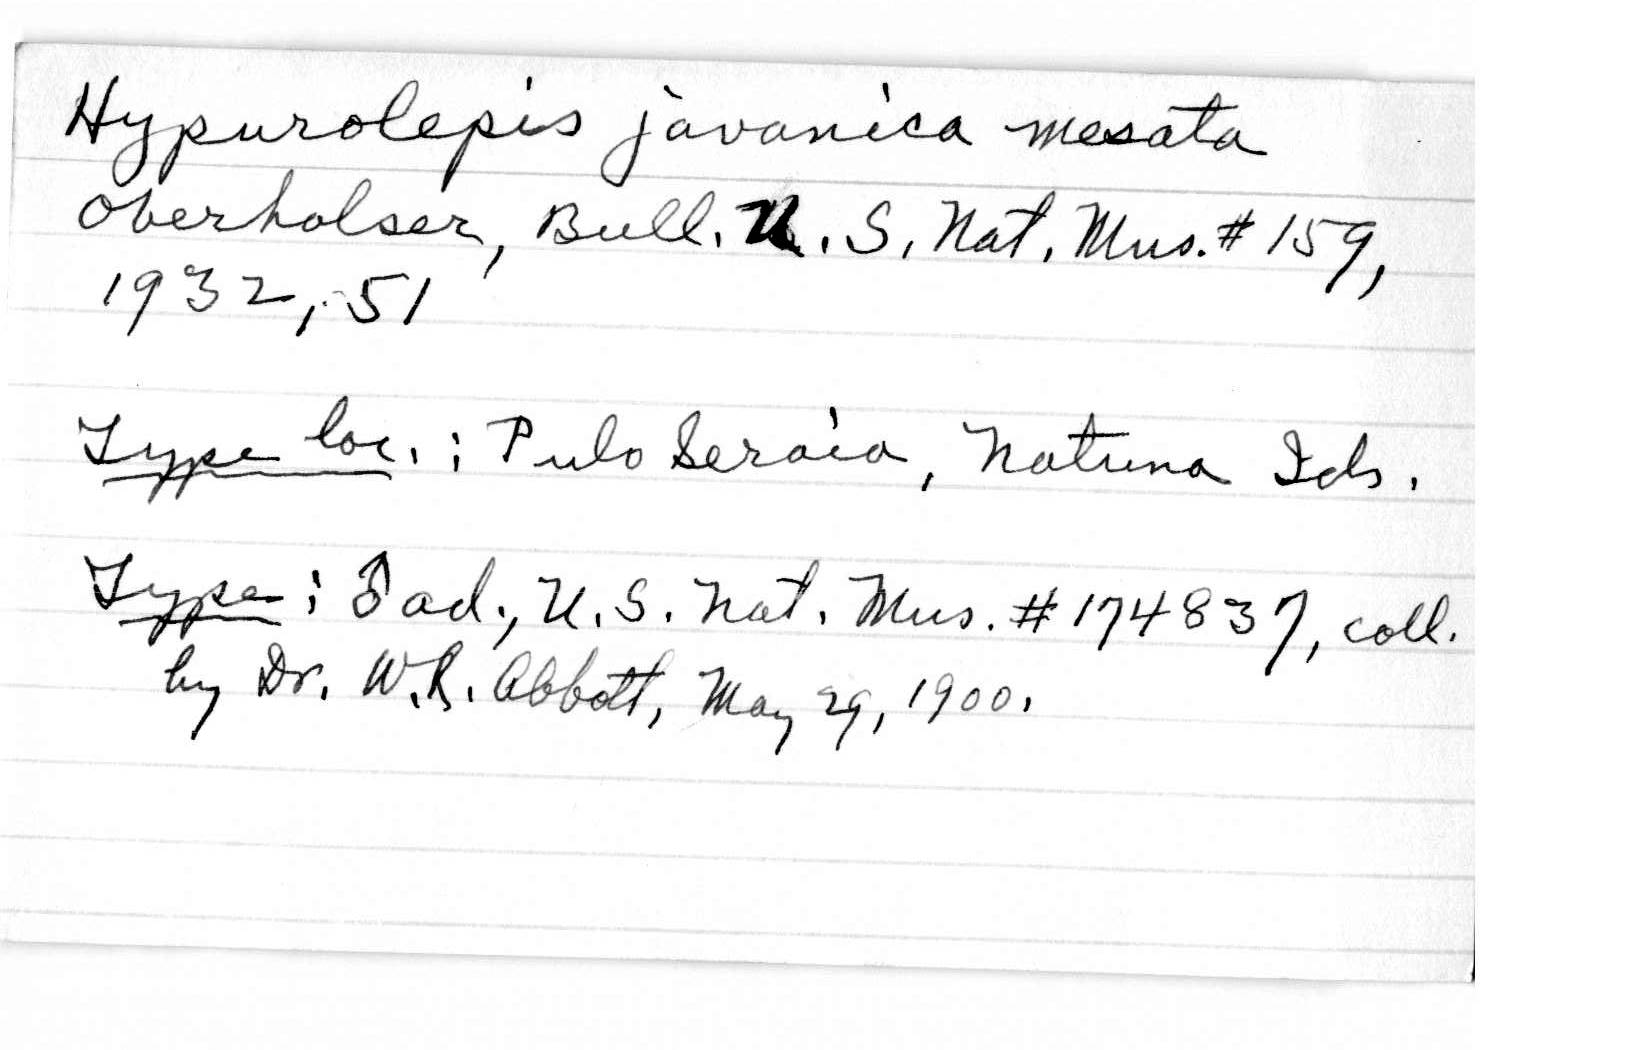 Hypurolepis javanica mesata
Oberholser, Bull. U.S. Nat. Mus. #159,
1932, 51
Type loc.: Pulo Seraia, Natuna Ids.
Type: ♂ ad., U.S. Nat. Mus. #174837, coll.
by Dr. W.L. Abbott, May 29, 1900.